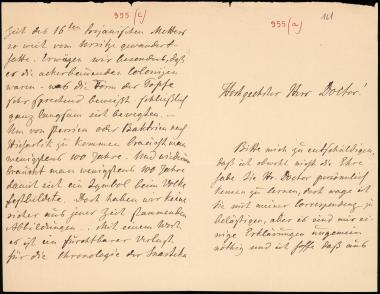 955 (c)
Zeit des 16ten trojanischen Metters
so weit vom Ursitze gewandert
hatte. Erwägen wir besonders, daß
er die ackerbauenden Colonien
waren – was die Form der Töpfe
sehr sprechend beweißt, schließlich
ganz langsam sich bewegten. –
Um von Persien oder Baktrien nach
Hissarlik zu kommen braucht man
wenigstens 100 Jahre. Und wiederum
braucht man wenigstens 100 Jahre
damit sich ein Symbol beim Volke
festbildete. Dort haben wir keine
sicher aus jener Zeit stammenden
Abbildungen... Mit einem Wort
es ist ein furchtbarer Verlust
für die Chronologie der Suastika
161
955 (a)
Hochgeehrter Herr Doctor!
Bitte mich zu entschuldigen,
daß ich obwohl nicht die Ehre
habe Sie H. Doctor persönlich
kennen zu lernen, doch wage ich
Sie mit meiner Correspondenz zu
belästigen, aber es sind mir ei-
nige Erklärungen ungemein
nöthig und ich hoffe daß aus